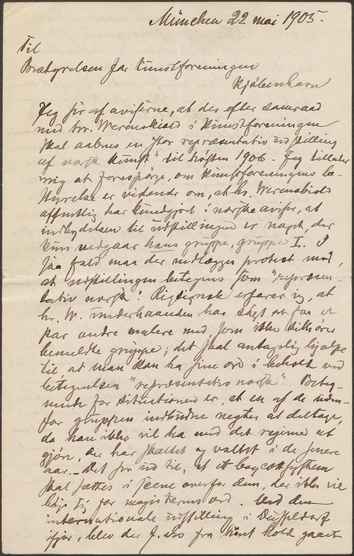 München 22 mai 1905.
Til
Bestyrelsen for Kunstforeningen
Kjöbenhavn
Jeg ser af aviserne, at der efter samraad
med hr. Werenskiold i Kunstforeningen
skal aabnes en stor repræsentativ udstilling
af norsk kunst til hösten 1906. Jeg tillader
mig at forespörge, om kunstforeningens be-
styrelse er vidende om, at hr. Werenskiold
offentlig har kundgjort i norske aviser, at
indbydelsen til udstillingen er nagt, der
kun hans gruppe, gruppe I. I
saa fald maa der nedlægges protest mod,
at udstillingen betegnes som "repræsen-
tativ norsk". Rigtignok erfarer jeg, at
hr. W. underhaanden har sögt at faa et
par andre malere med som ikke tilhörer
bemeldte gruppe; det skal antagelig hjælpe
til at man kan ha sine ord i behold ved
betegnelsen "repræsentativ norsk".
for situationen er, at en af de uden-
for gruppen indbudne negter at deltage,
da han ikke vil ha med det regime at
gjöre, der har skaltet og valtet i de senere
aar. Det ser ud til, at et boycotsystem
skal sættes i scene overfor dem, der ikke vil
böie sig for ord. Ved den
internationale udstilling i Düsseldorf
ifjor, blev der f. eks fra Kunst holdt gaaet